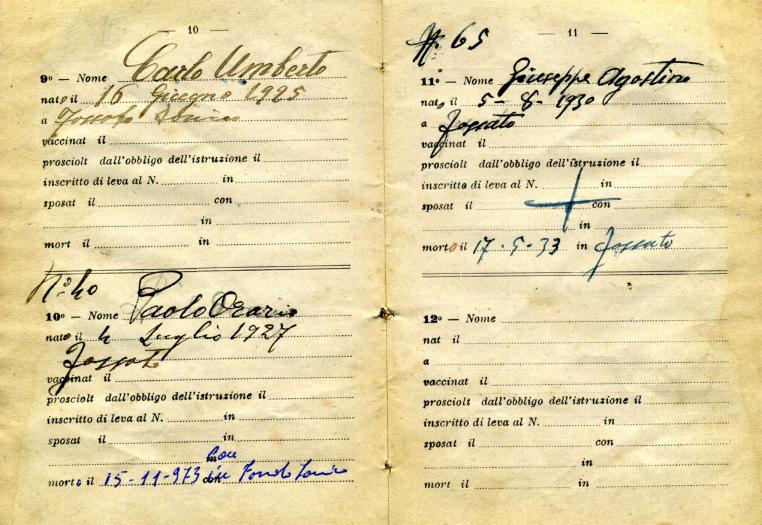 — 10 —
9º — Nome Carlo Umberto
nato il 16 Giugno 1925
a
vaccinat il
prosciolt dall'obbligo dell'istruzione il
inscritto di leva al N. in
sposat il con
in
mort il in
Nº 40
10º — Nome Paolo Orazio
nato il 4 Luglio 1927
Fossato
vaccinat il
prosciolt dall'obbligo dell'istruzione il
inscritto di leva al N. in
sposat il in
morto il 15-11-973
— 11 —
Nº 65
11º — Nome Giuseppe Agostino
nato il 5-8-1930
a Fossato
vaccinat il
prosciolt dall'obbligo dell'istruzione il
inscritto di leva al N. in
sposat il con
in
morto il 17-5-33 in Fossato
12º — Nome
nat il
a
vaccinat il
prosciolt dall'obbligo dell'istruzione il
inscritto di leva al N. in
sposat il con
in
mort il in